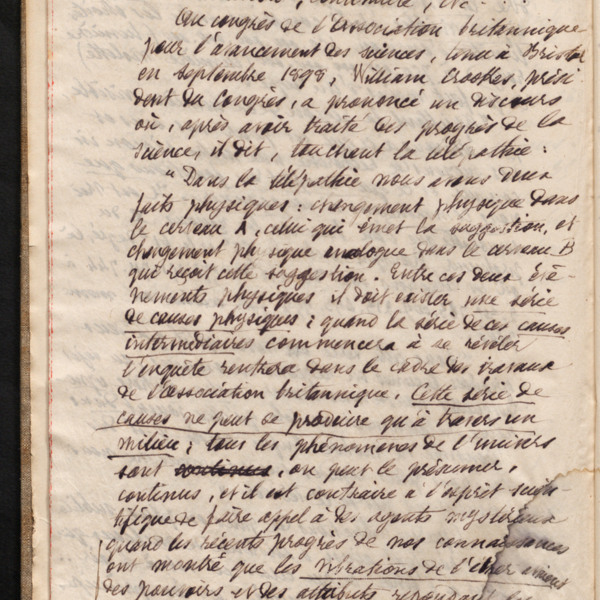 Au congrès de l'Association britannique
pour l'avancement des sciences, tenu à Bristol
en septembre 1898, William Crookes, prési-
dent du Congrès, a prononcé un discours
où, après avoir traité des progrès de la
science, il dit, touchant la télépathie :
"Dans la télépathie nous avons deux
faits physiques : changement physique dans
le cerveau A, celui qui émet la suggestion, et
changement physique analogue dans le cerveau B
qui reçoit cette suggestion. Entre ces deux évé-
nements physiques il doit exister une série
de causes physiques ; quand la série de ces causes
intermédiaires commencera à se révéler
l'enquête rentrera dans le cadre des travaux
de l'Association britannique. Cette série de
causes ne peut se produire qu'à travers un
milieu ; tous les phénomènes de l'univers
sont continus, on peut le présumer,
continus, et il est contraire à l'esprit scien-
tifique de faire appel à des agents mystérieux
quand les récents progrès de nos connaissances
ont montré que les vibrations de l'éther
des pouvoirs et des attributs